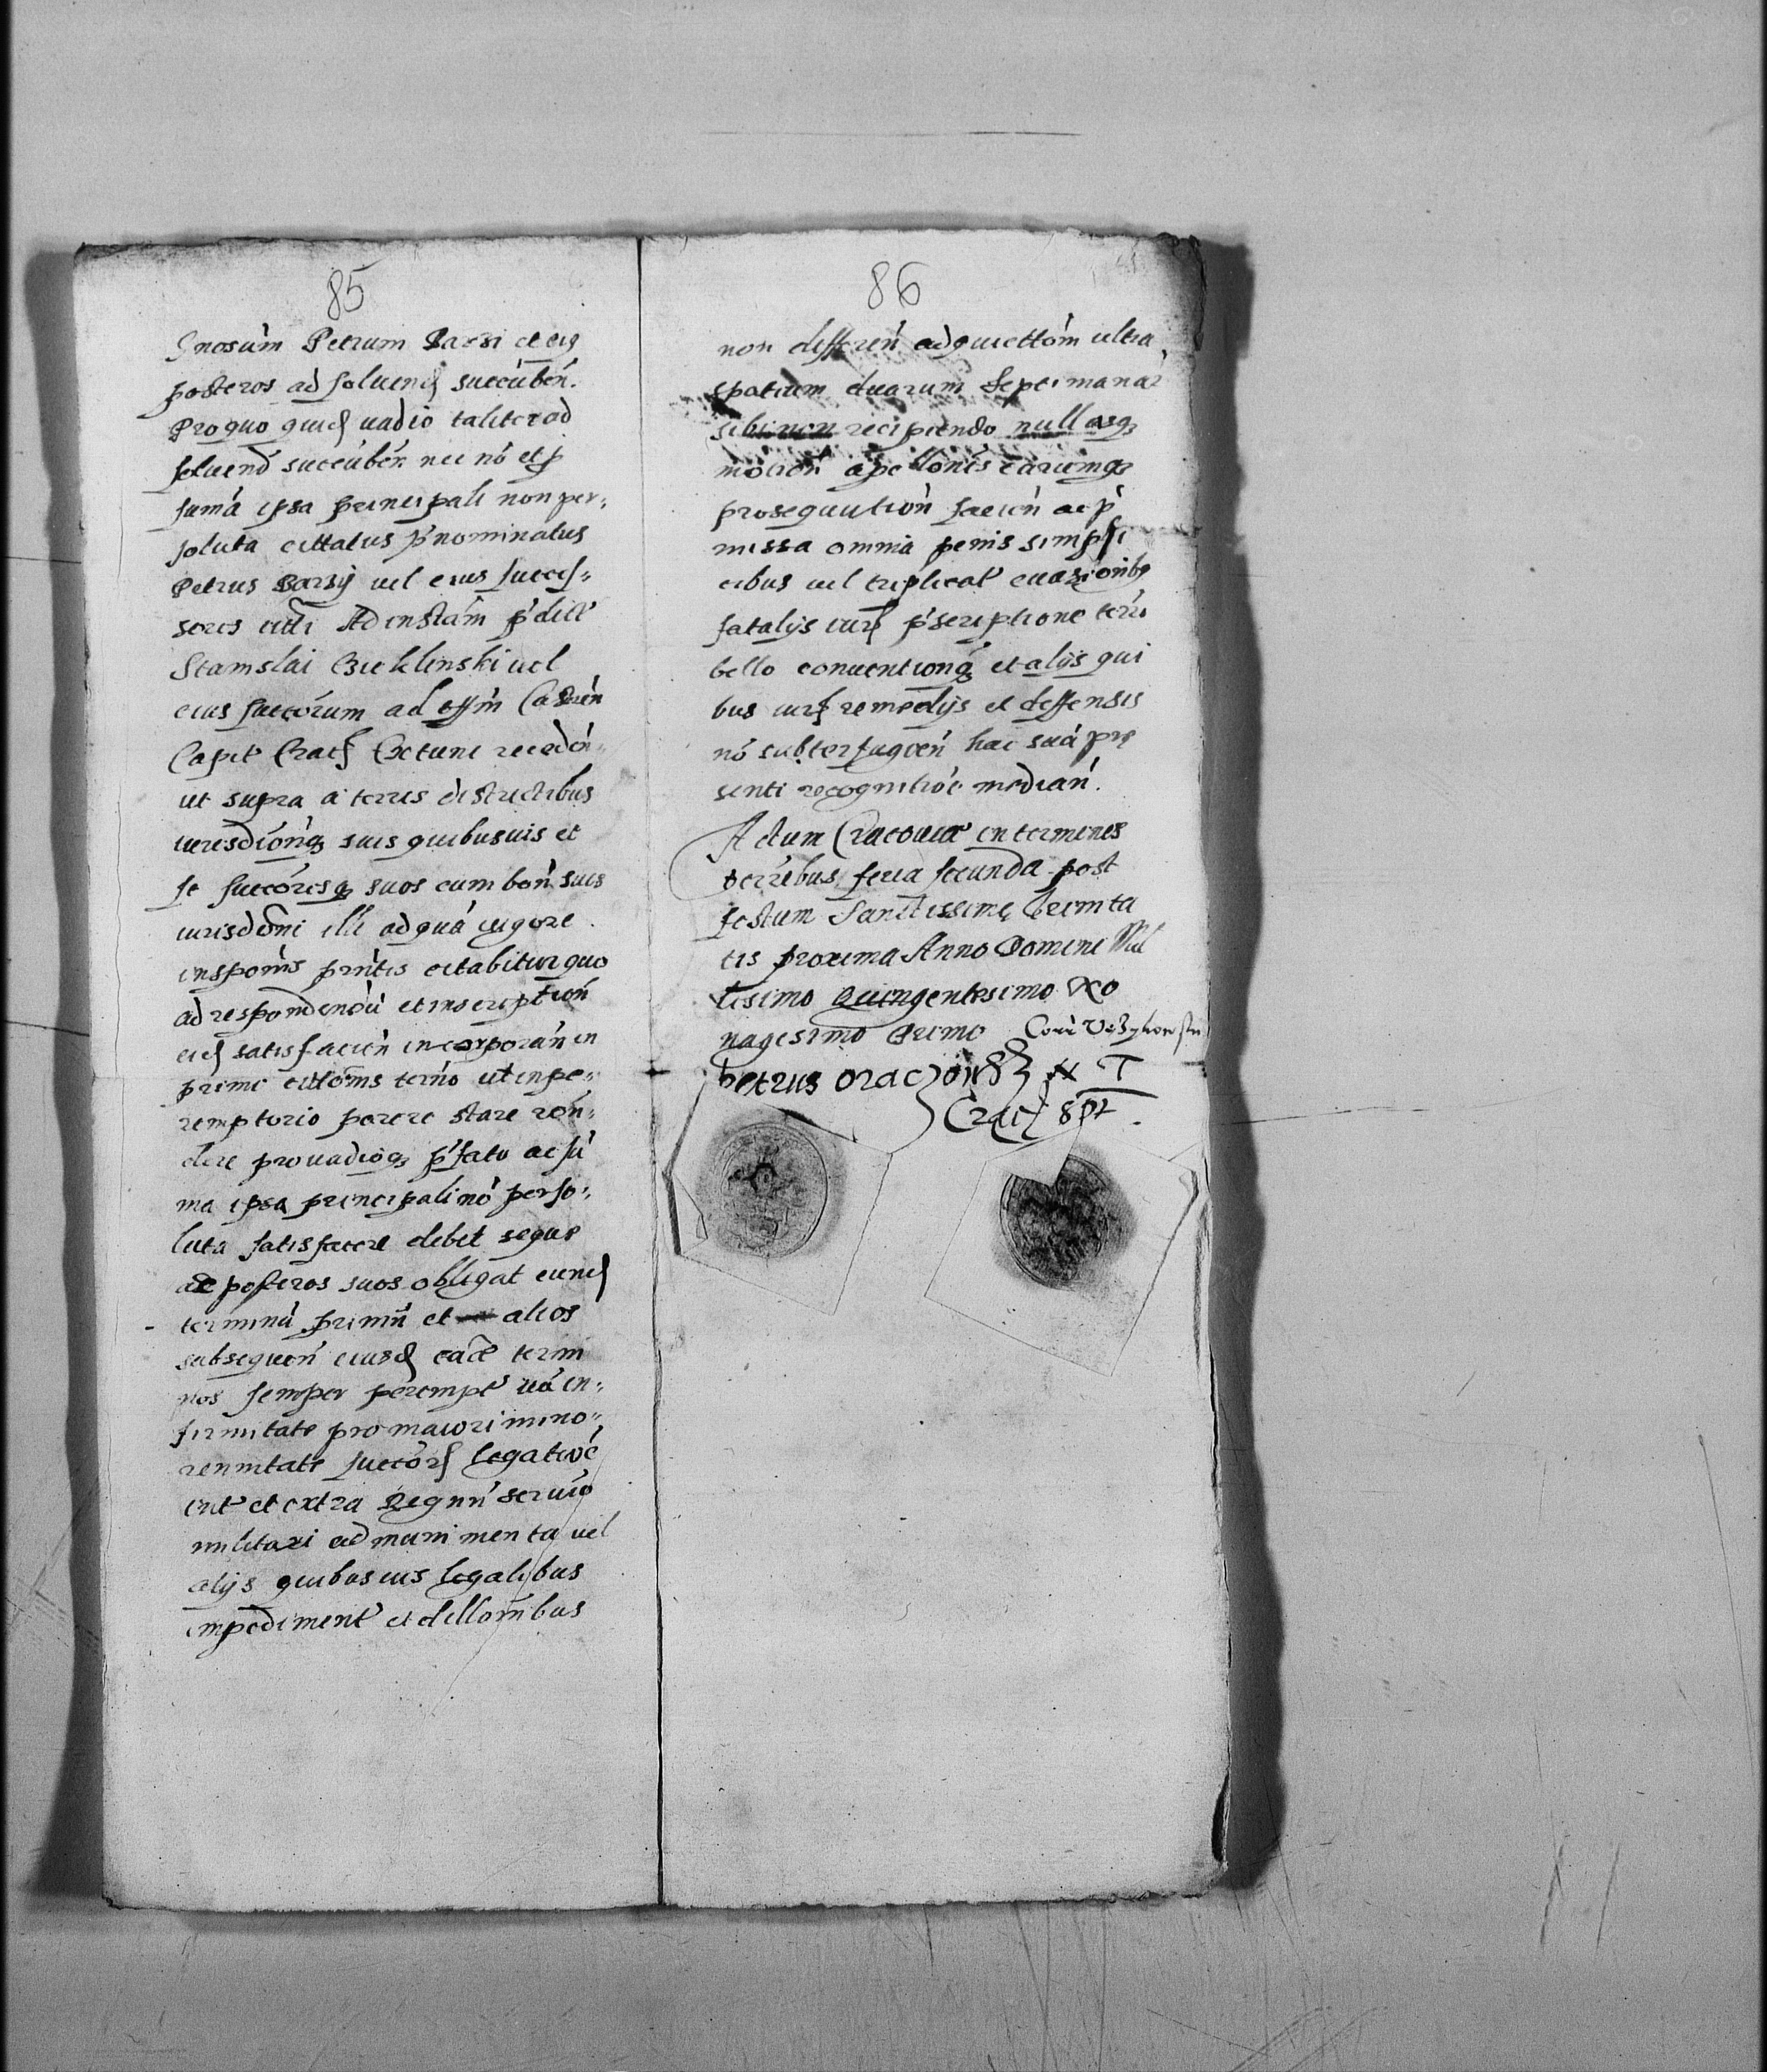 85
Gnosùm Petrum Barsi et eiꝗ
posteros ad soluend succuben̄.
Pro quo quid vadio taliter ad
soluend succuben̄ nec nō et ꝑ
sumā ipsa principali non per-
soluta cittatus p̄nominatus
Petrus Barsÿ uel eius succes-
sores Ad instām p̄dict
Stanislai Bieklinski uel
eius succorum ad offm̄ Castren̄
Capit Crac Extunc receden̄
ut supra a terris districtibus
iurisdīonq̨ suis quibusuis et
se succoresq̨ suos cum bon̄ suis
iurisdōni illi ad quā uigore
insꝑonis p̄ntis citabitur quo
ad respondendū et inscription̄
eid satisfacien̄ incorporan̄ in
primo cittōnis term̄o ut in pe-
remptorio parere stare ron̄-
dere pro uadioq̨ p̄fato ac sū
ma ipsa principali nō perso-
luta satisfacere debet seque
ac posteros suos obligat eund
terminū primū et alios
subsequen̄ eiusd termi
nos semper perempt in-
firmitate pro maiori mino-
rennitate succor legatiōe
int et extra Regnū seruio
militari ad munimenta uel
alijs quibusuis legalibus
impediment et dillōnibus
86
non differen̄ ad quiettōm ultra
spatium duarum septimanar
sibi non recipiendo nullasq̨
motion̄ apellonis earumq̨
prosequution̄ facien̄ ac p̄
missa omnia penis simpli
cibus uel triplicat euasionibꝗ
fatalijs iur p̄scriptione terri
bello conuentionq̨ et alijs qui
bus iur remedijs et deffensis
nō subterfugien̄ hac suā prę
senti recognitiōe median̄.
Actum Cracouiæ in terminis
terrebus feria secunda post
festum Sanctissimę Trinita
tis proxima Anno Domini Mil
lesimo Quingentesimo No
nagesimo Primo
petrus
Crac